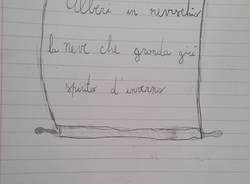 Alberi in nevischio
la neve che gronda giù
spirito d'inverno